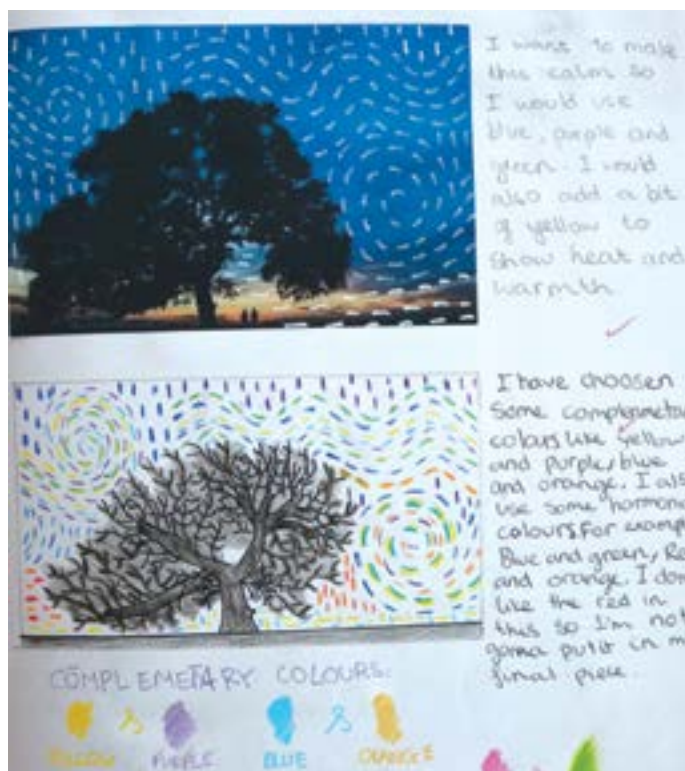 I want to make
this calm so
I would use
blue, purple and
green. I would
also add a bit
of yellow to
show heat and
warmth
I have choosen
Some
colours like yellow
and purple, blue
and orange. I
use some
colours for
Blue and green,
and orange. I
like the red in
this so I'm not
gonna put it in
final piece.
COMPLEMETARY COLOURS:
YELLOW & PURPLE BLUE & ORANGE